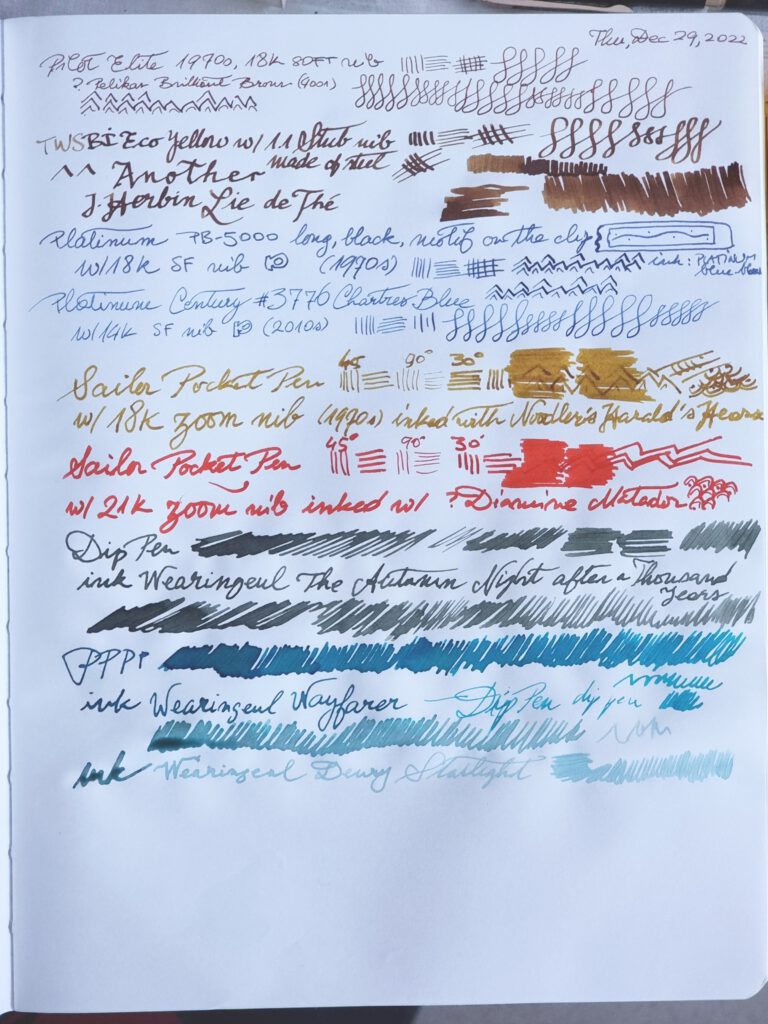 Thu, Dec 29, 2022
Pilot Elite 1970s, 18k SOFT nib
? Pelikan Brilliant Brown (4001)
TWSBI Eco Yellow w/ 1.1 Stub nib
^^ Another made of steel
J. Herbin Lie de Thé
Platinum PB-5000 long, black, motif on the clip
w/18k SF nib (1970s) ink: PLATINUM
blue-black
Platinum Century #3776 Chartres Blue
w/14k SF nib (2010s)
Sailor Pocket Pen 45° 90° 30°
w/ 18k zoom nib (1970s) inked with Noodler's Harold's Hears
Sailor Pocket Pen 45° 90° 30°
w/ 21k zoom nib inked w/ ? Diamine Matador
Dip Pen
ink Wearingeul The Autumn Night after a Thousand
Years
ink Wearingeul Wayfarer — Dip Pen dip pen
ink Wearingeul Dewy Starlight